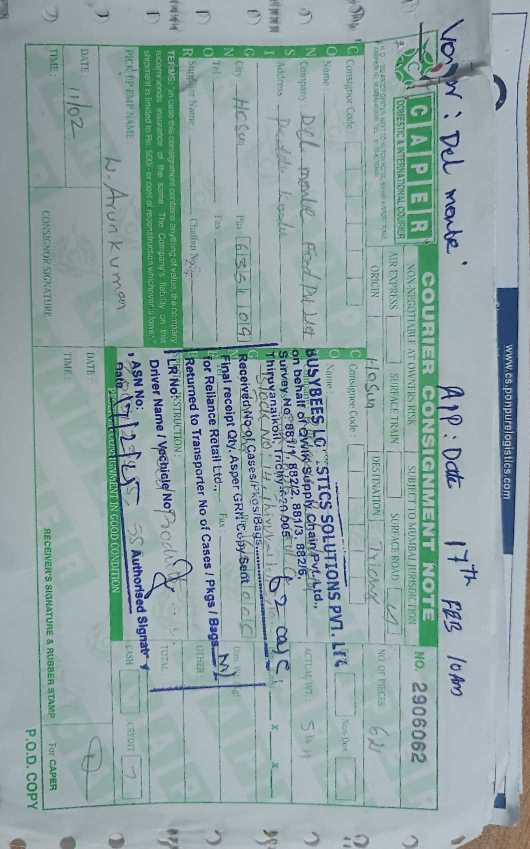 www.cs.ponpurelogistics.com
Vendor : Del monte. A/P : Date 17th FEB 10 Am
CAPER
DOMESTIC & INTERNATIONAL COURIER
COURIER CONSIGNMENT NOTE
NO. 2906062
NON-NEGOTIABLE AT OWNERS RISK
SUBJECT TO MUMBAI JURISDICTION
AIR EXPRESS
SURFACE TRAIN
SURFACE ROAD
NO OF PIECES
62
ORIGIN
DESTINATION
Hosur
Trichy
Consignor Code :
Consignee Code :
Non-Docs
Name
Company Del monte Food Pvt Ltd
ACTUAL WT.
Address
City Hosur
Pin 635109
Tel
Fax
Sender Name
Challan No.
BUSYBEES LOGISTICS SOLUTIONS PVT. LTD
on behalf of Qwik Supply Chain Pvt. Ltd.,
Survey No. 881/1, 882/2, 881/3, 882/6,
Thiruvanaikoil, Trichy
Received No of Cases/Pkgs/Bags 62 cays
Final receipt Qty. Asper GRN Copy Sent
for Reliance Retail Ltd.,
Returned to Transporter No of Cases / Pkgs / Bags
LR No:
Driver Name / Vechicle No
ASN No:
Date 17/2/25
Authorised Signatory
OTHER
TOTAL
CASH
CREDIT
TERMS: "In case this consignment contains anything of value, the company
recommends insurance of the same. The Company's liability on this
shipment is limited to Rs. 500/- or cost of reconstruction whichever is lower."
PICK UP EMP NAME
L. Arunkumar
DATE: 11/02
TIME:
CONSIGNOR SIGNATURE
DATE:
TIME:
RECEIVER'S SIGNATURE & RUBBER STAMP
For CAPER
P.O.D. COPY